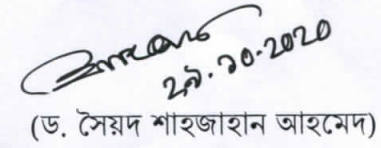 ২৯.১০.২০২০
(ড. সৈয়দ শাহজাহান আহমেদ)